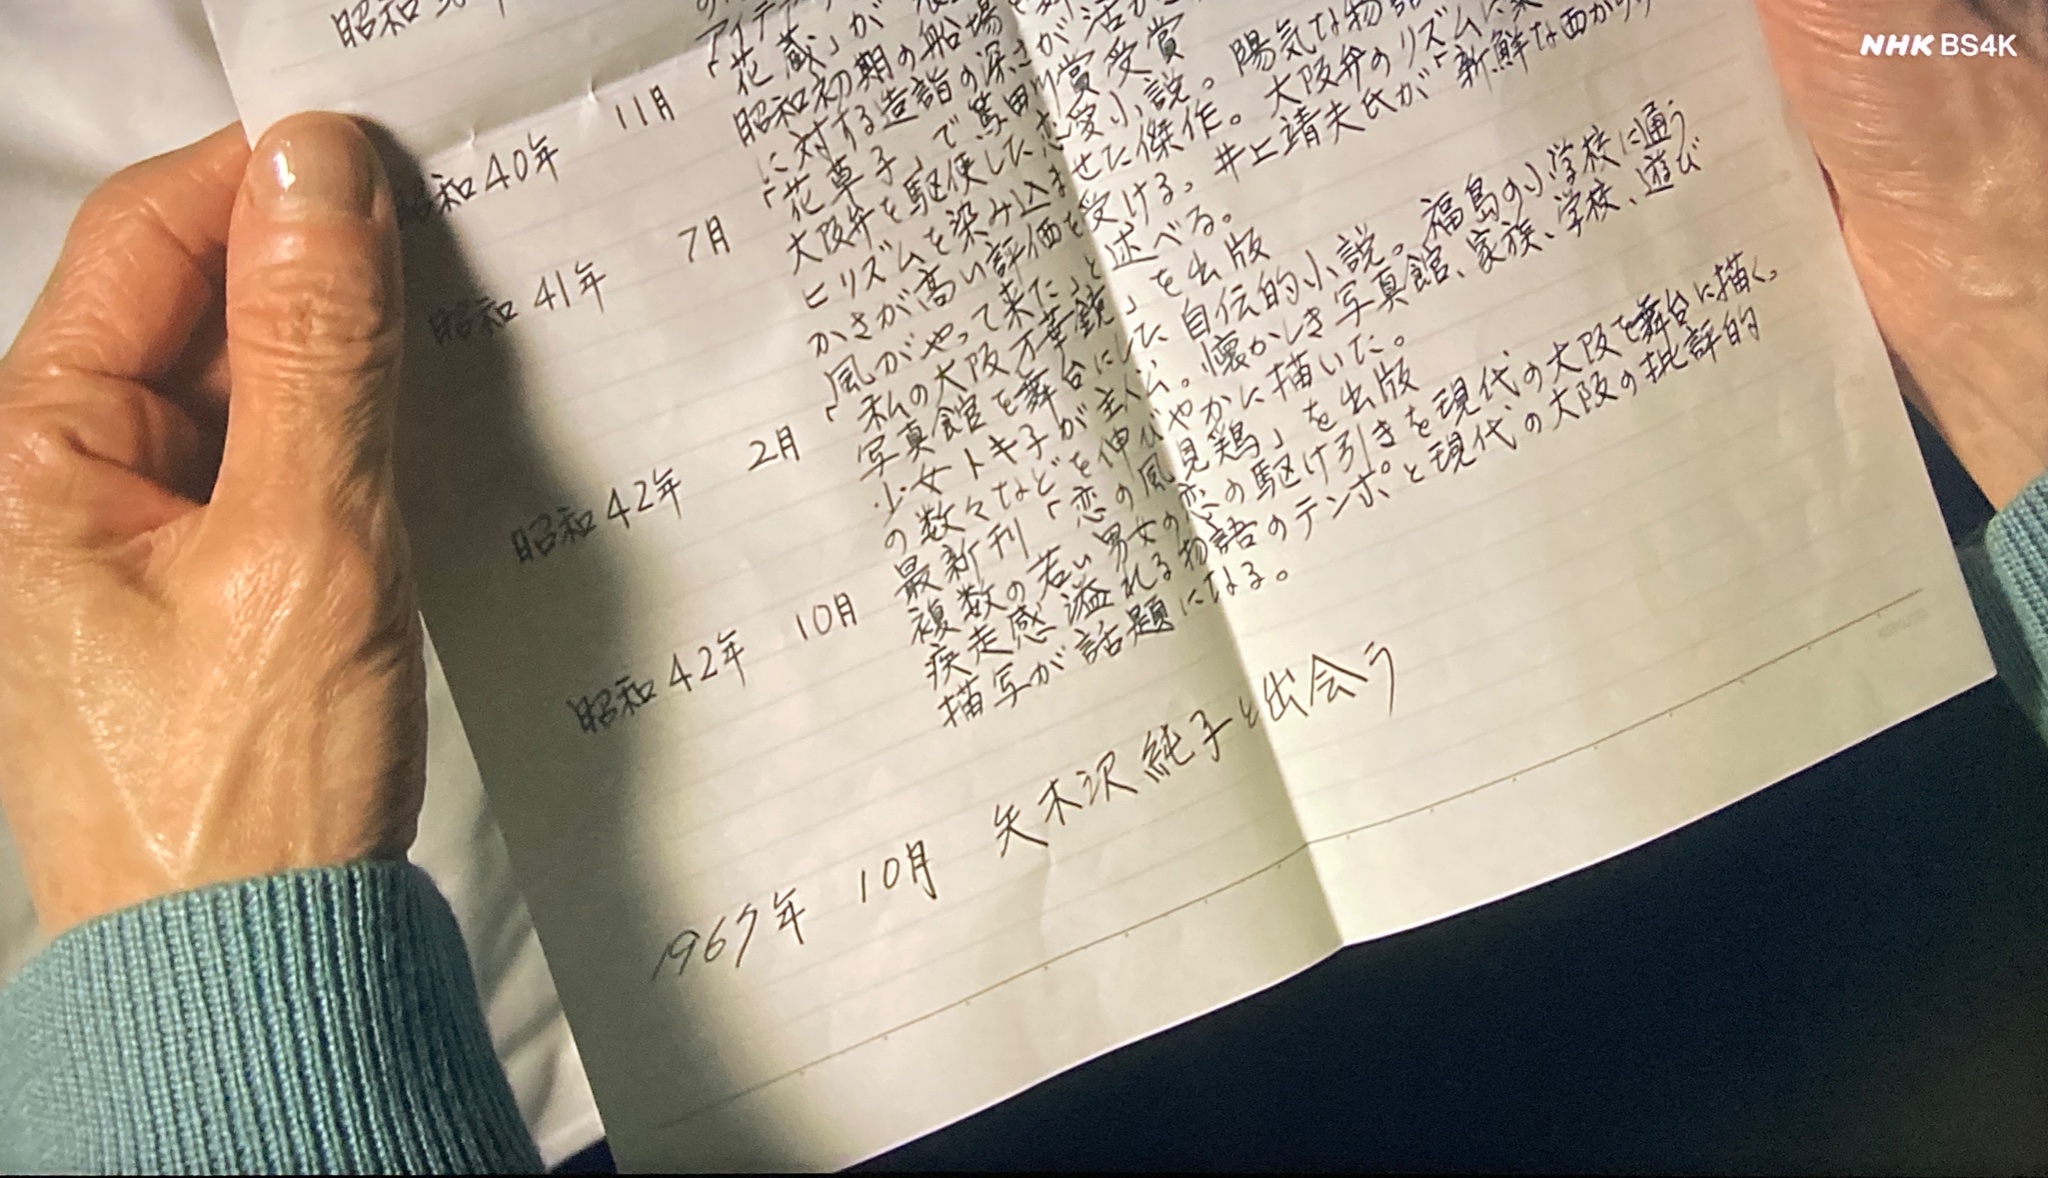 NHK BS4K
昭和
アイデア
「花蔵」が
昭和40年 11月 昭和初期の船場
に対する造詣の深さが
「花草子」で篤田川賞受賞
昭和41年 7月 大阪弁を駆使した恋愛小説。陽気な物語
ヒリズムを染み込ませた傑作。大阪弁のリズムに
かさが高い評価を受ける。井上靖夫氏が「新鮮な西から
風がやって来た」と述べる。
昭和42年 2月 「私の大阪万華鏡」を出版
写真館を舞台にした自伝的小説。福島の小学校に通う
少女トキ子が主人公。懐かしき写真館、家族、学校、遊び
の数々などを伸びやかに描いた。
昭和42年 10月 最新刊「恋の風見鶏」を出版
複数の若い男女の恋の駆け引きを現代の大阪を舞台に描く。
疾走感溢れる物語のテンポと現代の大阪の批評的
描写が話題になる。
1967年 10月 矢木沢純子と出会う